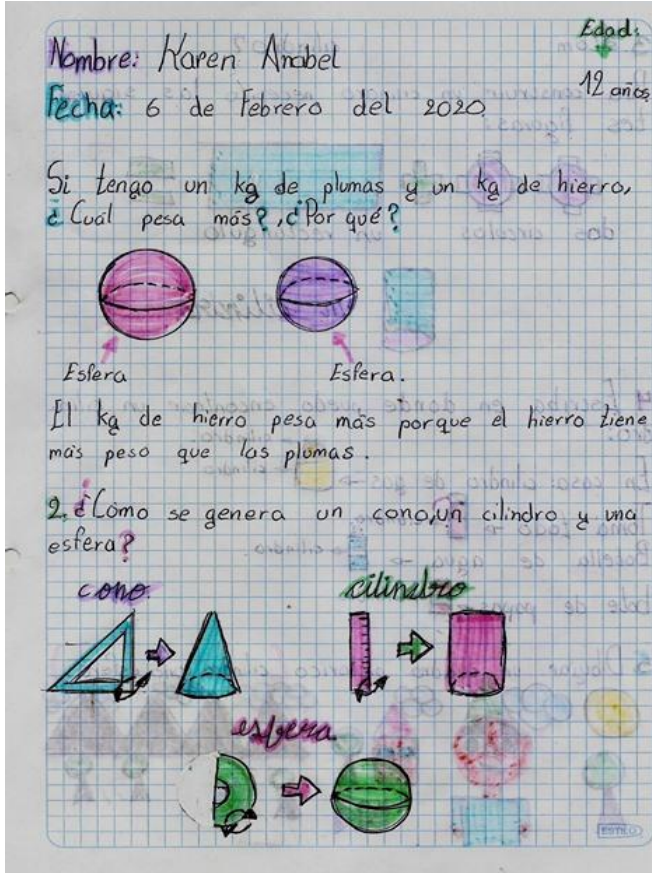 Edad:
Nombre: Karen Anabel
12 años
Fecha: 6 de Febrero del 2020
Si tengo un kg de plumas y un kg de hierro,
¿Cuál pesa más?, ¿Por qué?
Esfera Esfera.
El kg de hierro pesa más porque el hierro tiene
más peso que las plumas.
2. ¿Cómo se genera un cono, un cilindro y una
esfera?
cono. cilindro
esfera.
ESTILO